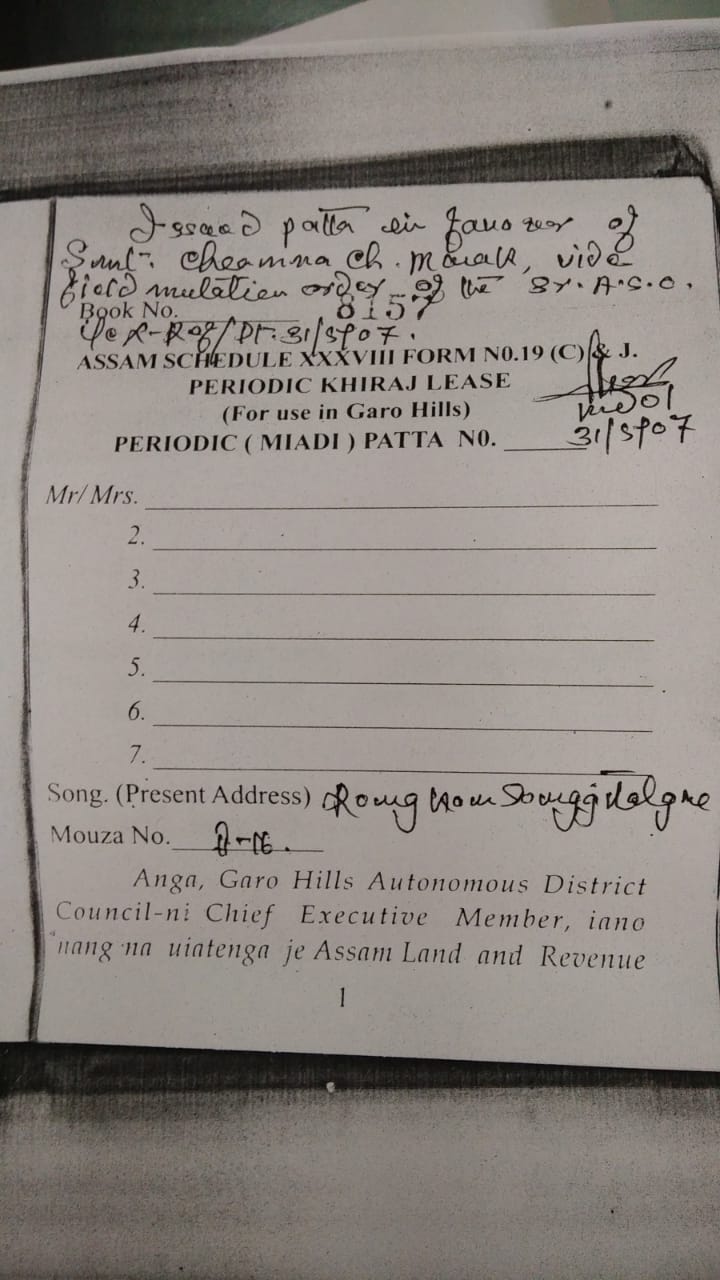 Issued patta in favour of
Smt. Cheamna Ch. Marak, vide
field mutation order of the Sr. A.S.O.
Book No. 8157
Dt. 31/5/07.
ASSAM SCHEDULE XXXVIII FORM N0.19 (C) & J.
PERIODIC KHIRAJ LEASE
(For use in Garo Hills)
PERIODIC ( MIADI ) PATTA N0.
31/5/07
Mr/ Mrs.
2.
3.
4.
5.
6.
7.
Song. (Present Address)
Mouza No.
Anga, Garo Hills Autonomous District
Council-ni Chief Executive Member, iano
nang·na uiatenga je Assam Land and Revenue
1